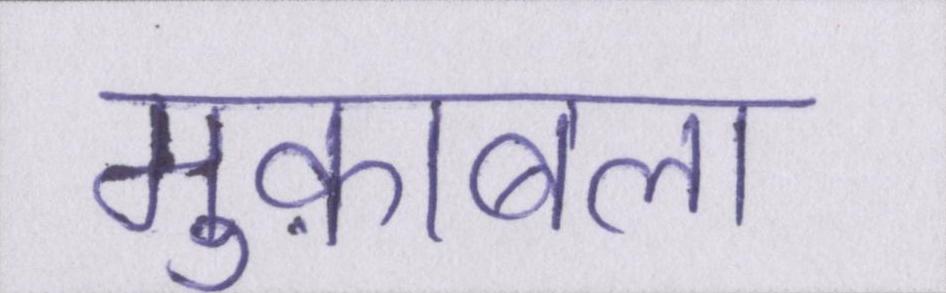 मुक़ाबला